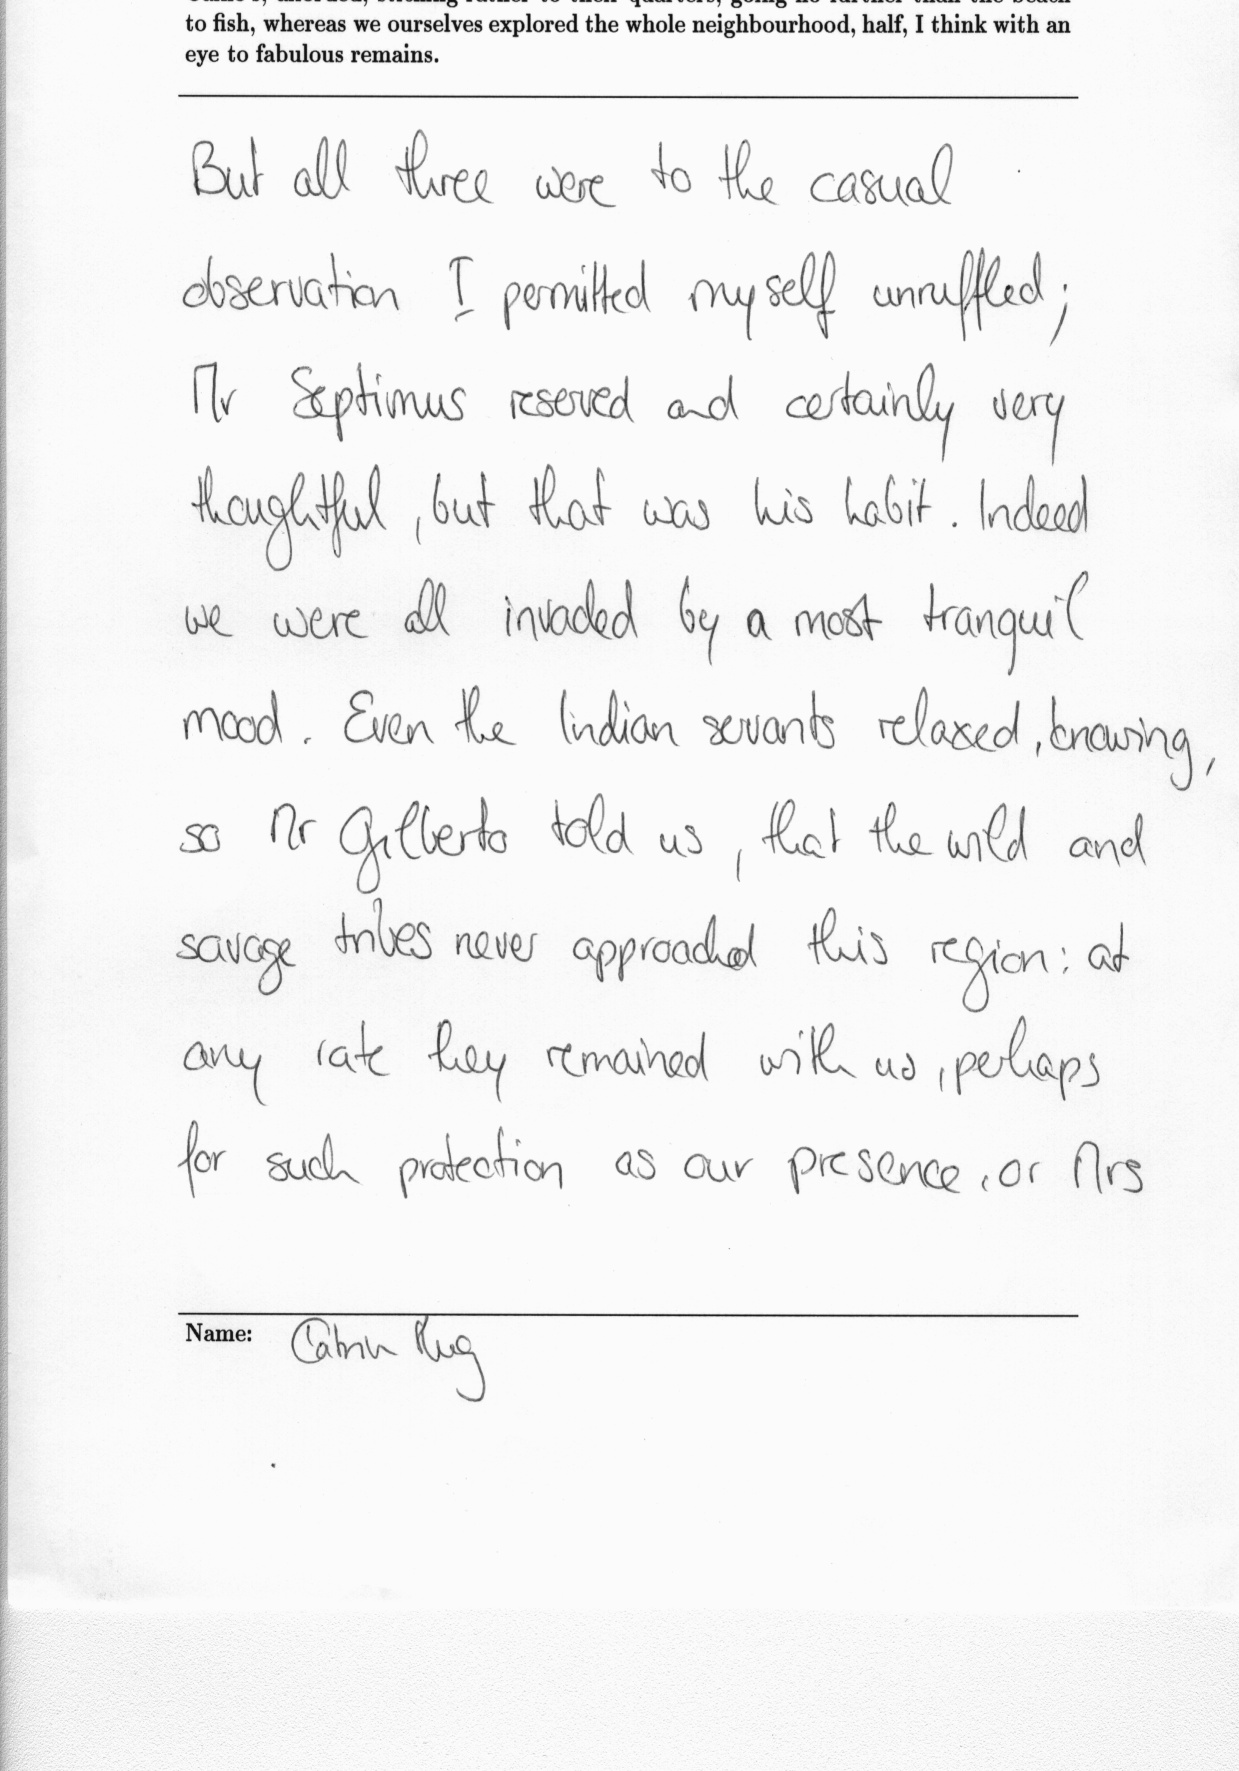 to fish, whereas we ourselves explored the whole neighbourhood, half, I think with an
eye to fabulous remains.
But all three were to the casual
observation I permitted myself unruffled;
Mr Septimus reserved and certainly very
thoughtful, but that was his habit. Indeed
we were all invaded by a most tranquil
mood. Even the Indian servants relaxed, knowing,
so Mr Gilberto told us, that the wild and
savage tribes never approached this region: at
any rate they remained with us, perhaps
for such protection as our presence, or Mrs
Name: Catrin